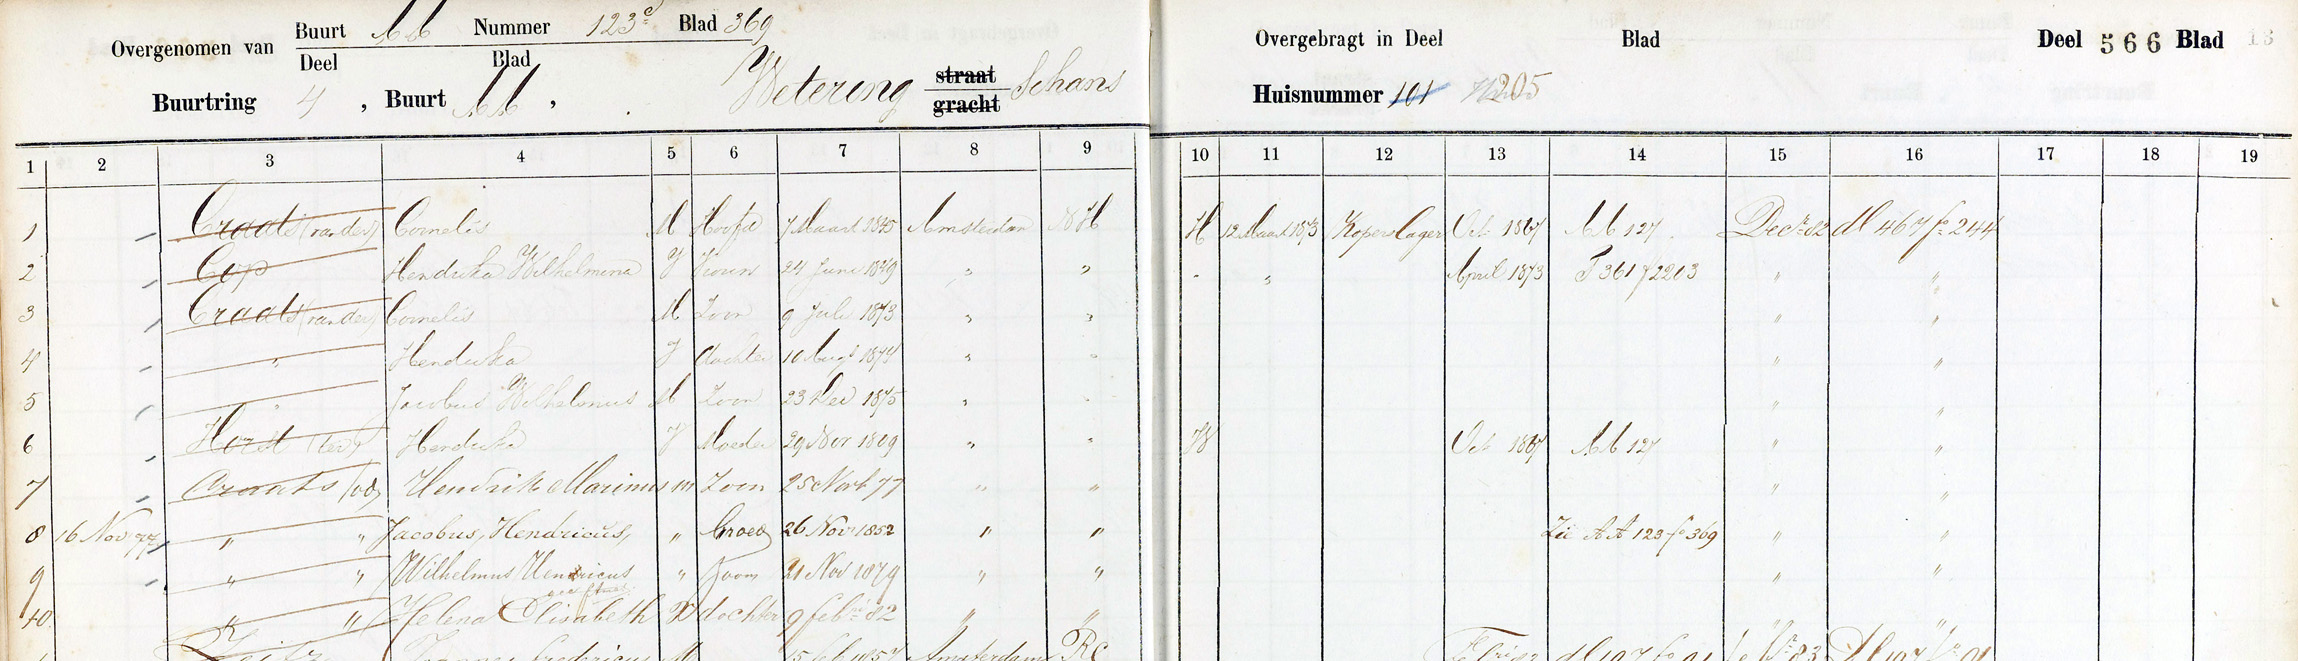 Overgenomen van Buurt AA Nummer 123c Blad 369
Deel Blad
Buurtring 4, Buurt AA, Wetering straat gracht Schans
Overgebragt in Deel Blad Deel 566 Blad 13
Huisnummer 101 205
1 2 3 4 5 6 7 8 9 10 11 12 13 14 15 16 17 18 19
1 Craats (van der) Cornelis M Hoofd 7 Maart 1845 Amsterdam NH H 12 Maart 1873 Koperslager Oct 1867 AA 127 Decr 82 dl 467 fo 244
2 Cup Hendrika Wilhelmina V Vrouw 24 Juni 1849 " " " April 1873 T 361 f 2203 " "
3 Craats (van der) Cornelis M Zoon 9 Juli 1873 " " " "
4 " Hendrika V dochter 10 Augs 1874 " " " "
5 Jacobus Wilhelmus M Zoon 23 Dec 1875 " " " "
6 Horst (ter) Hendrika V Moeder 29 Nov 1809 " " W Oct 1867 AA 127 " "
7 Craats (vd) Hendrik Marinus m Zoon 25 77 " " " "
8 16 Nov 77 " " Jacobus, Hendricus, " broed 26 Nov 1852 " " Zie AA 123 fo 369 " "
9 " " Wilhelmus Hendricus " zoon 21 Nov 1879 " " " "
10 " " Helena Elisabeth V dochter 9 febr 82 " " " "
fredericus M 15 feb 1857 Amsterdam RC